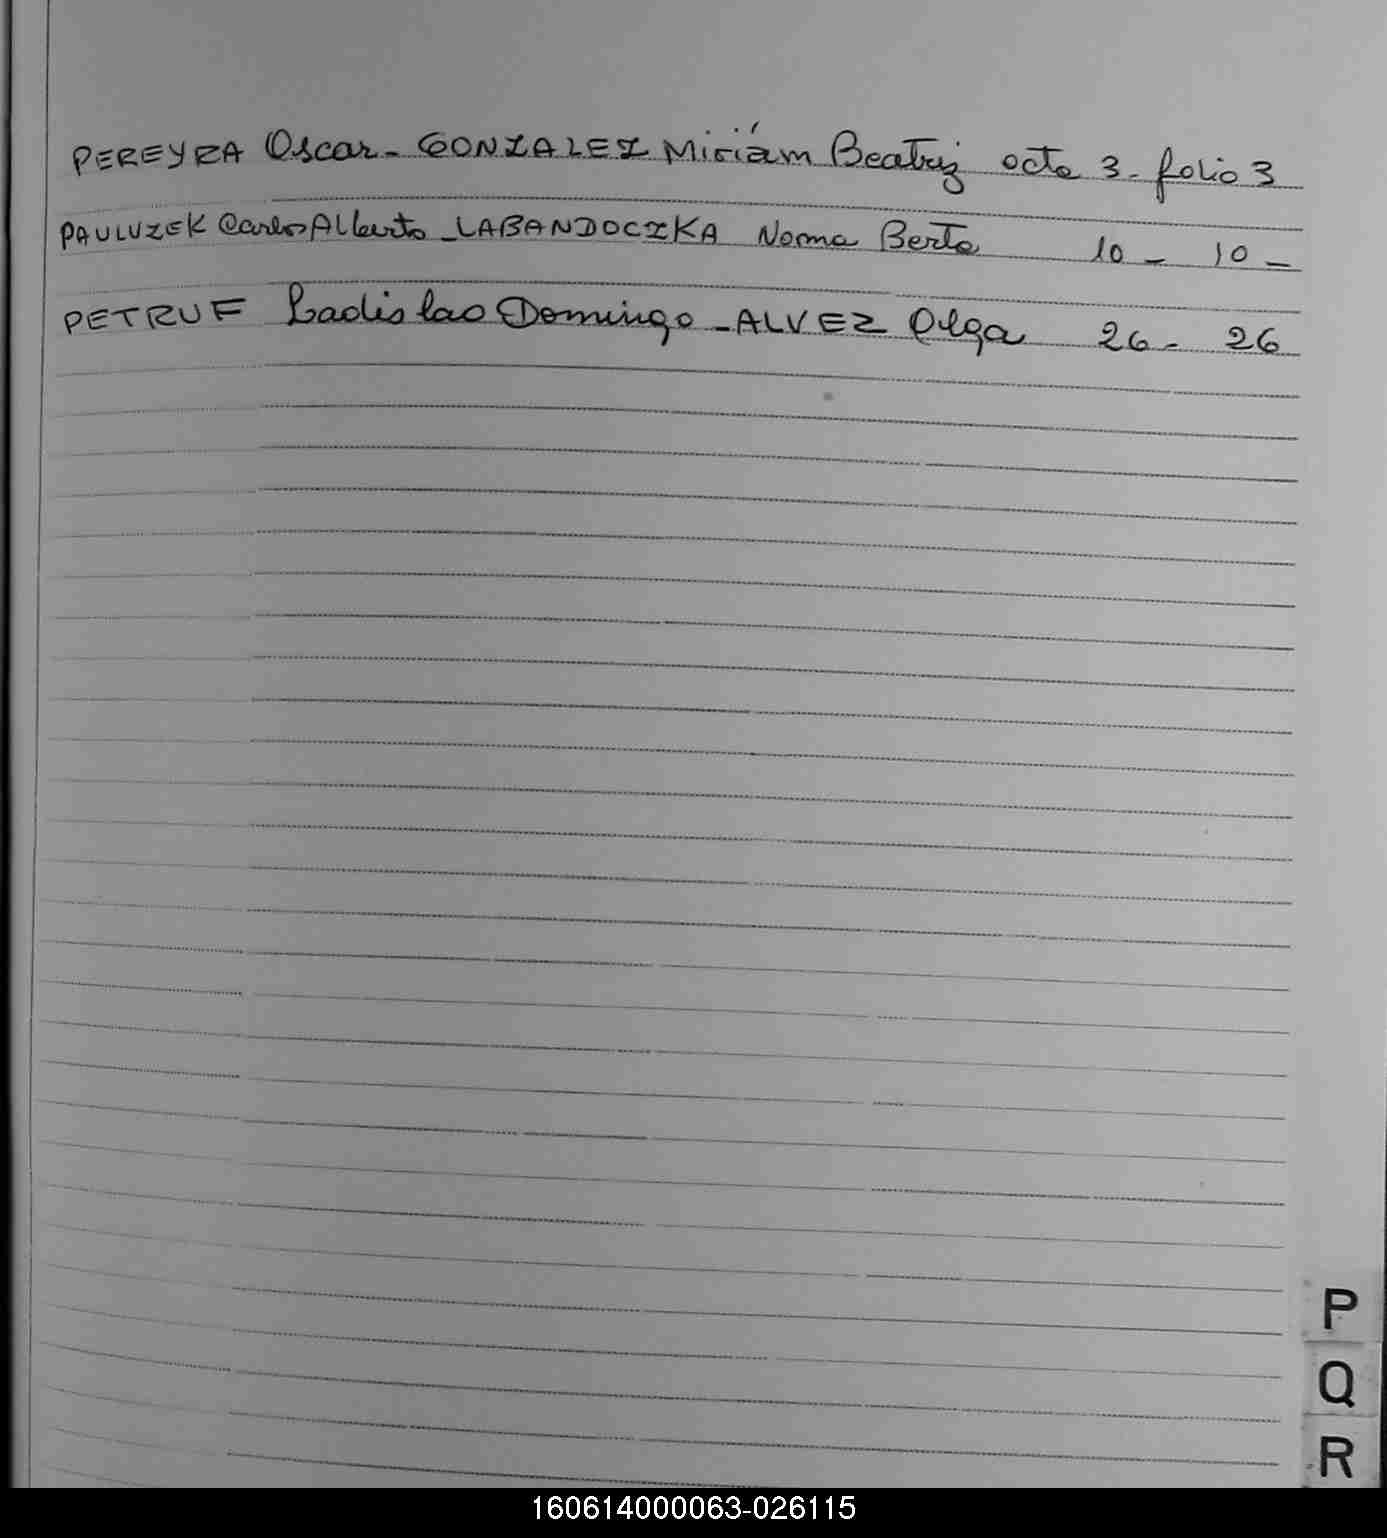 PEREYRA Oscar - GONZALEZ Miriám Beatriz acta 3 - folio 3
PAULUZEK Carlos Alberto - LABANDOCZKA Norma Berta 10 - 10 -
PETRUF Ladislao Domingo - ALVEZ Olga 26 - 26
P
Q
R
160614000063-026115